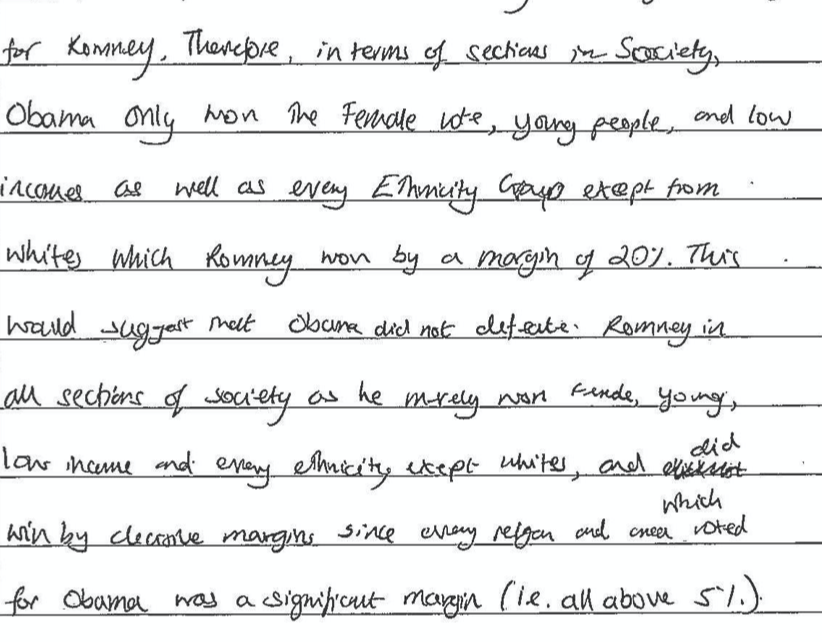 for Romney. Therefore, in terms of sections in Socciety,
Obama only won the Female vote, young people, and low
incomes as well as every Ethnicity Group except from
whites which Romney won by a margin of 20%. This
would suggest that Obama did not defeate. Romney in
all sections of society as he merely won Female, young,
low income and every ethnicity except whites, and did
which
win by decisive margins since every religon and area voted
for Obama was a significant margin (i.e. all above 5%.)